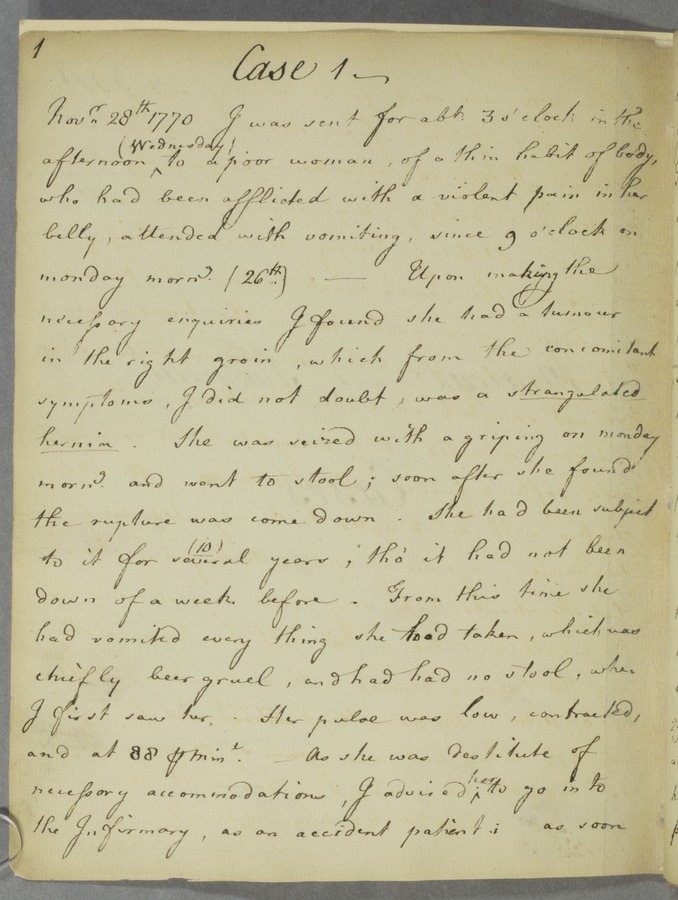 1
Case 1
Novr. 28th 1770 I was sent for abt. 3 o'clock in the
(Wednesday)
afternoon ^ to a poor woman, of a thin habit of body,
who had been afflicted with a violent pain in her
belly, attended with vomiting, since 9 o'clock on
monday morng. (26th.) — Upon making the
necessary enquiries I found she had a tumour
in the right groin, which from the concomitant
symptoms, I did not doubt, was a strangulated
hernia. She was seized with a griping on monday
morng. and went to stool; soon after she found
the rupture was come down. She had been subject
(10)
to it for several years; tho' it had not been
down of a week before. From this time she
had vomited every thing she had taken, which was
chiefly beer gruel, and had had no stool, when
I first saw her. Her pulse was low, contracted,
and at 88 ℘ mint. — As she was destitute of
her
necessary accommodations, I advised ^ to go in to
the Infirmary, as an accident patient: as soon